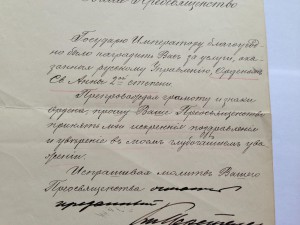 Преосвященство
Государю Императору благоугод-
но было наградить Васъ за услуги, ока-
занныя русскому Управленію, Орденомъ
Св. Анны 2ой степени
Препровождая грамоту и знаки
ордена, прошу Ваше Преосвященство
принять мои искреннее поздравленіе
и увѣреніе въ моемъ глубочайшемъ ува-
женіи.
Испрашивая молитвъ Вашего
Преосвященства остаюсь
преданный